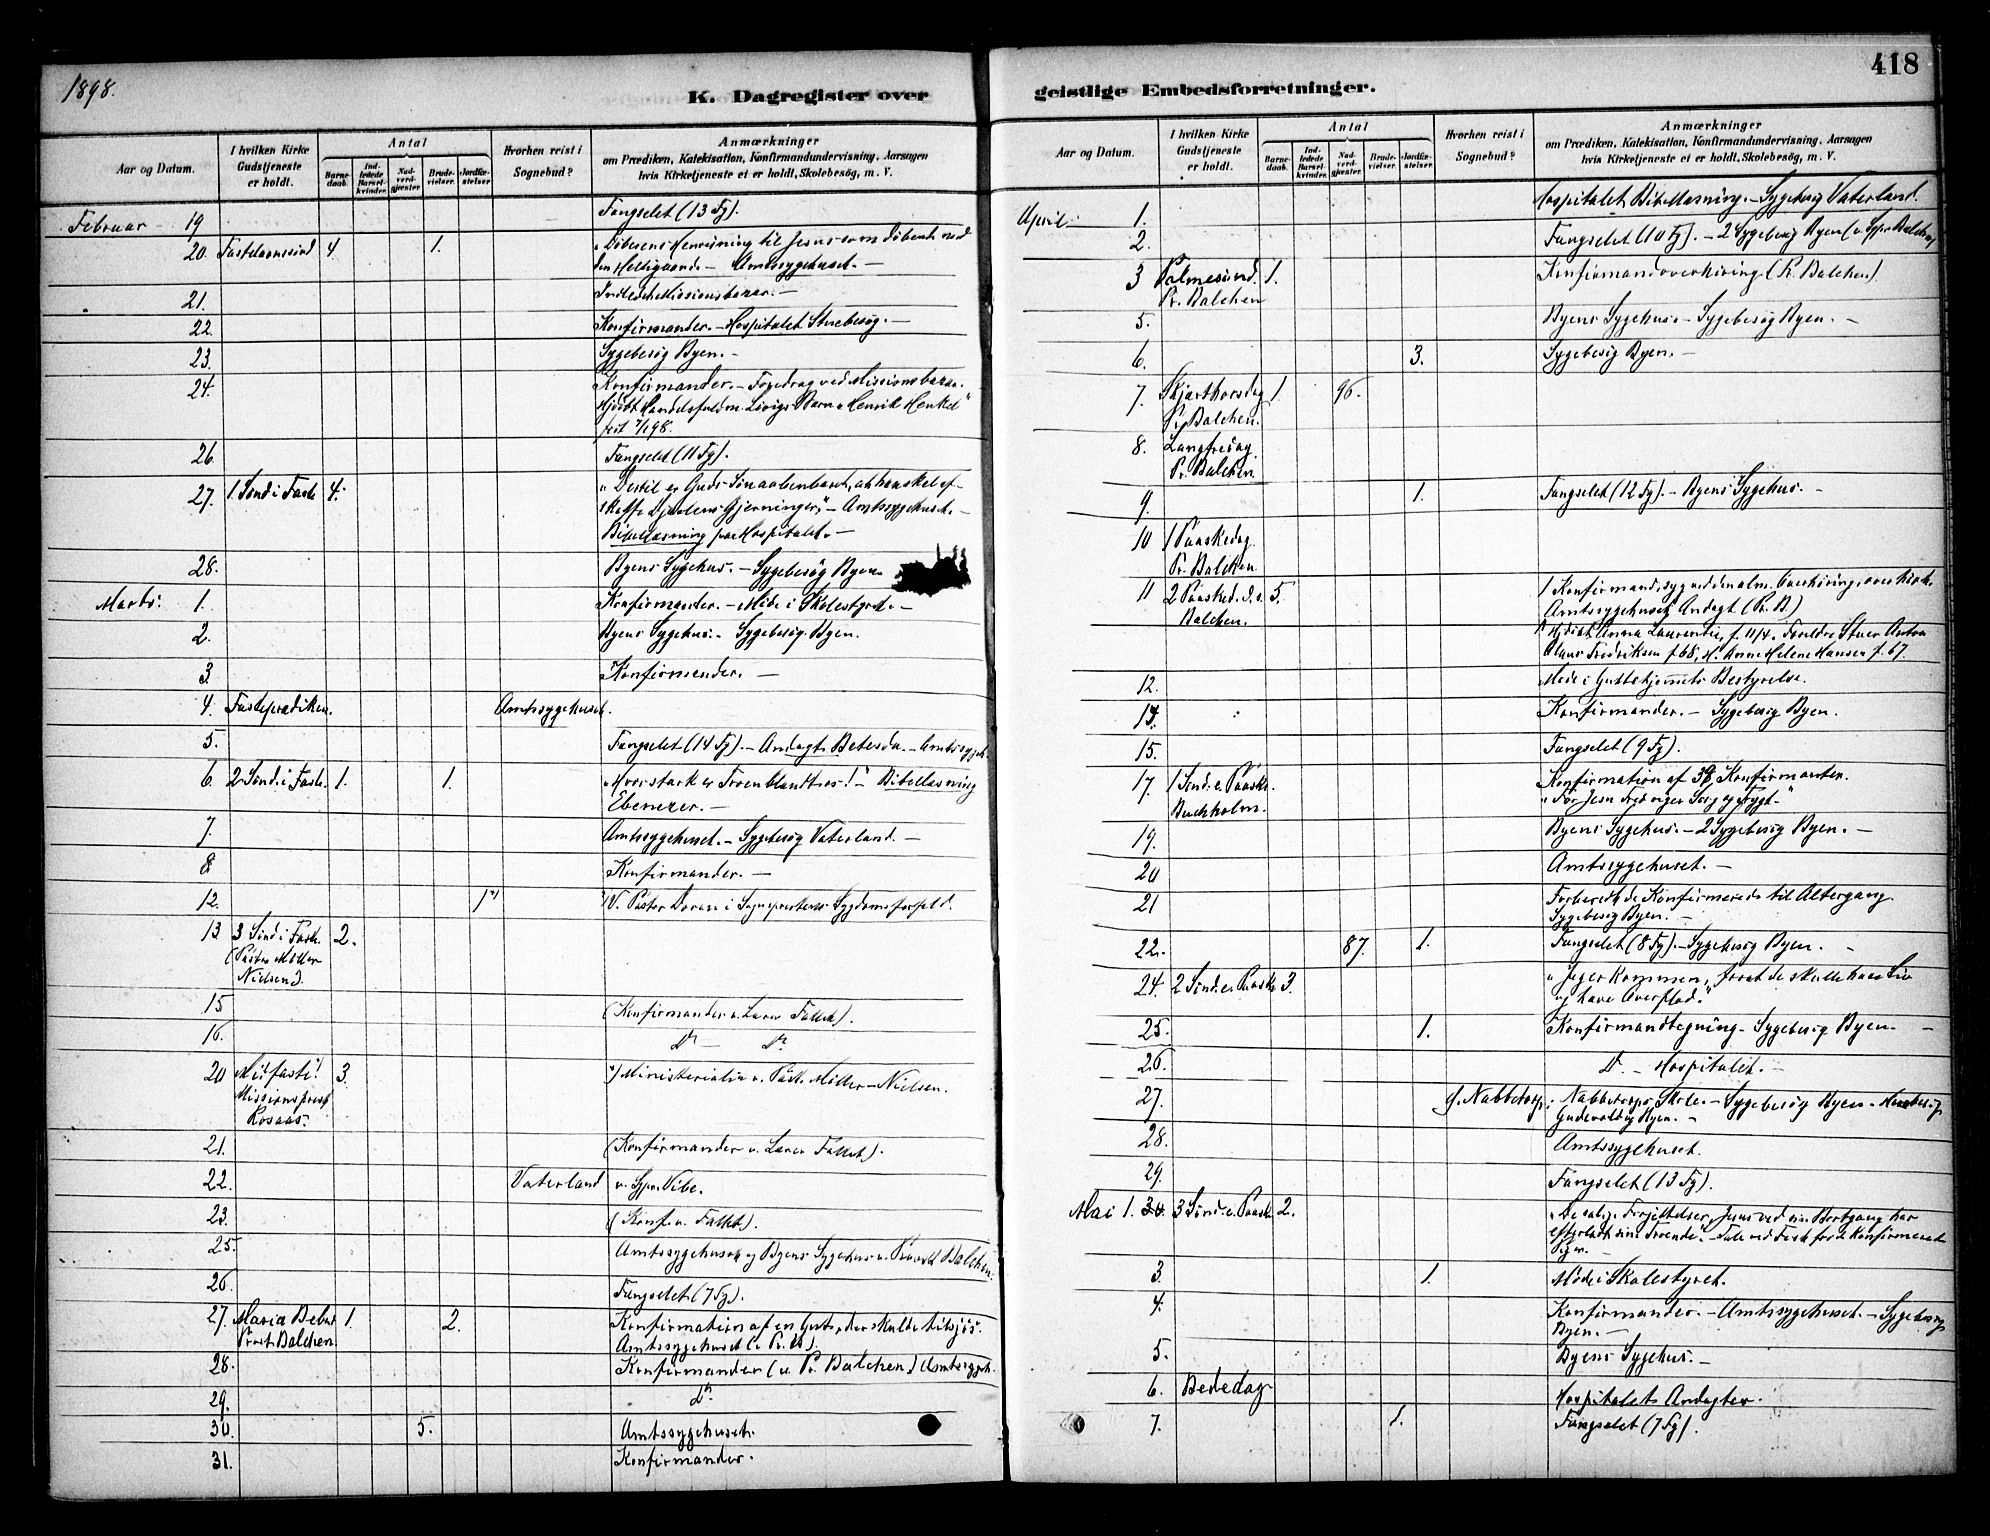 1898.
K. Dagregister over
Aar og Datum.
I hvilken Kirke Gudstjeneste er holdt.
Antal
Barne-daab.
Ind-ledede Barsel-kvinder.
Nad-verd-gjæster.
Brude-vielser.
Jordfæ-stelser.
Hvorhen reist i Sognebud?
Anmærkninger
om Prædiken, Katekisation, Konfirmandundervisning, Aarsagen
hvis Kirketjeneste ei er holdt, Skolebesög, m. V.
Februar 19 Fængslet (13 Fg).
20. Fastelavnssönd 4 1.
den Helligaand. - Amtssygehuset. -
21. Missionsbazar. -
22. Konfirmander. - Hospitalet Stuebesög. -
23. Sygebesög Byen. -
24. Konfirmander. - Foredrag ved Missionsbazar.
26. Fængslet (11 Fg).
27. 1 Sönd i Faste 4. "Dertil er Guds Sön aabenbaret, at han skal af-
skaffe Djævlens Gjerninger", - Amtssygehuset. -
Bibellæsning paa Hospitalet. -
28. Byens Sygehus. - Sygebesög Byen.
Marts. 1. Konfirmander. - Möde i Skolestyret. -
2. Byens Sygehus. - Sygebesög Byen.
3 Konfirmander. -
4. Fasteprædiken. Amtssygehuset.
5. Fængslet (14 Fg). - Andagt Betesda. - Amtssygeh.
6. 2 Sönd. i Faste. 1. 1. "Hvor stærk er Troen blandt os!" Bibellæsning
Ebenezer. -
7. Amtssygehuset. - Sygebesög Vaterland. -
8 Konfirmander. -
12. 1*) *) V. Pastor i Sognepræstens Sygdomsforfald.
13 3 Sönd i Faste 2.
(Pastor Möller
Nielsen).
15 (Konfirmander v. Lærer Fallet).
16. Do - Do
20 Midfaste! 3. *) Ministerialia v. Past. Möller-Nielsen.
Missionsprest
Rosaas.
21. (Konfirmander v. Lærer Fallet).
22. Vaterland v. Spr. Vibe.
23. (Konf. v. Fallet).
25. Amtssygehuset og Byens Sygehus v. Provst Balchen.
26. Fængslet (7 Fg).
27. Maria Bebud. 1. 2. Konfirmation af en Gut, der skulde tilsjös.
Provst Balchen Amtssygehuset (v. Pr. B).
28. Konfirmander (v. Pr. Balchen) Amtssygeh.
29. Do
30. 5. Amtssygehuset.
31. Konfirmander.
418
geistlige Embedsforretninger.
Aar og Datum.
I hvilken Kirke Gudstjeneste er holdt.
Antal
Barne-daab.
Ind-ledede Barsel-kvinder.
Nad-verd-gjæster.
Brude-vielser.
Jordfæ-stelser.
Hvorhen reist i Sognebud?
Anmærkninger
om Prædiken, Katekisation, Konfirmandundervisning, Aarsagen
hvis Kirketjeneste ei er holdt, Skolebesög, m. V.
April 1. Hospitalet Bibellæsning. - Sygebesög Vaterland.
2. Fængslet (10 Fg). - 2 Sygebesög Byen (v. Spr. Balchen)
3 Palmesönd. 1. Konfirmandoverhöring (Pr. Balchen).
Pr. Balchen
5. Byens Sygehus. - Sygebesög Byen. -
6. 3. Sygebesög Byen. -
7. Skjærthorsdag 1 96.
Pr. Balchen.
8. Langfredag.
Pr. Balchen
9. 1. Fængslet (12 Fg). - Byens Sygehus. -
10 1 Paaskedag.
Pr. Balchen
11 2 Paasked. 5. 1 Konfirmand, syg ved den alm. Overhöring, overhört.
Balchen. Amtssygehuset Andagt (Pr. B.)
Hjdöbt Anna Laurentze, f. 11/4. Forældre Stuer Anton
Olaus Fredriksen f. 68, H. Anne Helene Hansen f. 67.
12. Möde i Guttehjemmets Bestyrelse.
14. Konfirmander. - Sygebesög Byen.
15. Fængslet (9 Fg).
17. 1 Sönd. e. Paaske Konfirmation af 39 Konfirmanter.
Buchholm. "For Jesu Fred viger Sorg og Frygt."
19. Byens Sygehus. - 2 Sygebesög Byen. -
20 Amtssygehuset. -
21 Forberedt de Konfirmerede til Altergang.
Sygebesög Byen. -
22. 87. 1. Fængslet (8 Fg). - Sygebesög Byen. -
24. 2 Sönd. e. Paaske 3. "Jeg er kommen, forat de skulle have Liv
og have Overflod."
25. 1. Konfirmandtegning - Sygebesög Byen. -
26. Do - Hospitalet. -
27. Nabbetorp Skole. - Sygebesög Byen -
28. Amtssygehuset.
29. Fængslet (13 Fg).
Mai 1. 3 Sönd. e. Paaske 2. "De salige Forjættelser, Jesus ved sin Bortgang har
efterladt sine Troende". - Tale ved Fest for de konfirmerede
Piger. -
3. 1. Möde i Skolestyret.
4. Konfirmander. - Amtssygehuset. - Sygebesög
Byen. -
5. Byens Sygehus. -
6. Bededag Hospitalets Andagter.
7. 1. Fængslet (7 Fg).